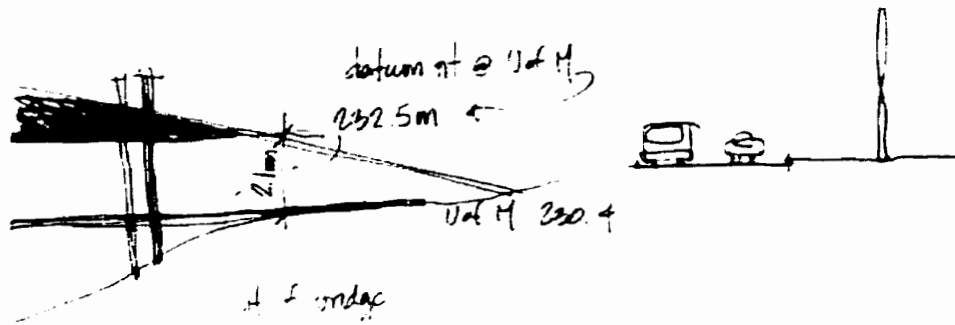 datum pt @ U of M
232.5m
2.1m
U of M 230.4